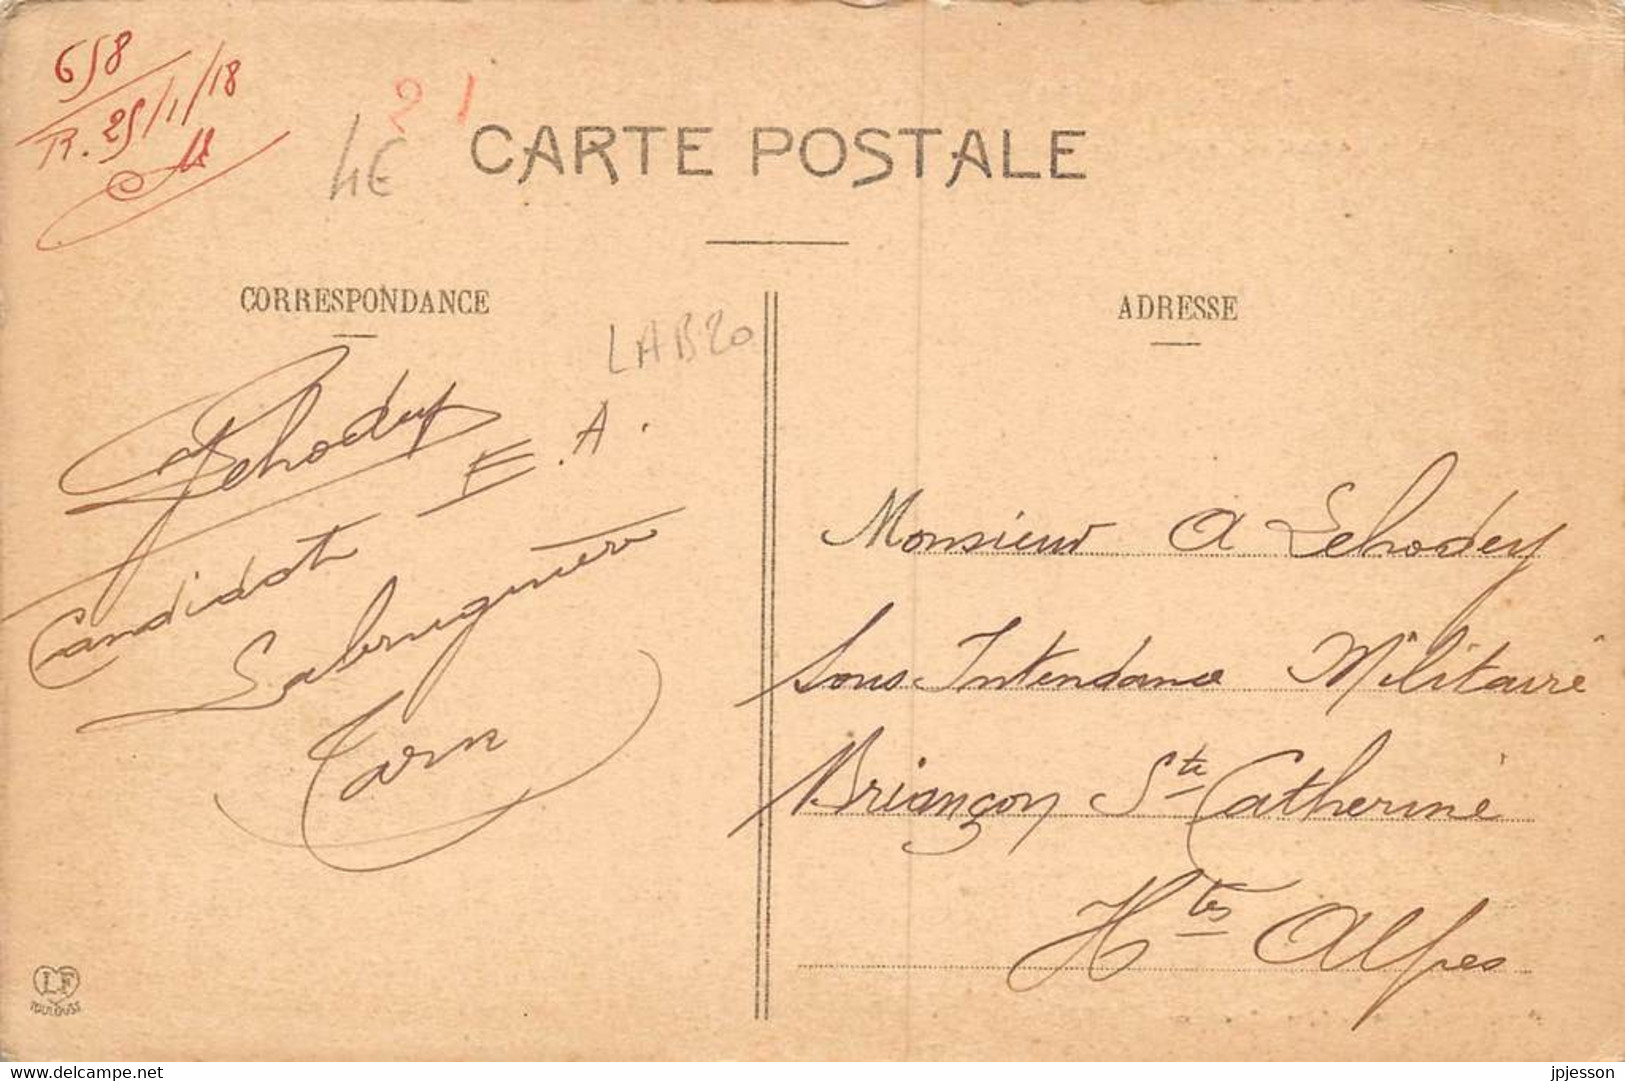 658
R. 25/1/18
21
4€
CARTE POSTALE
CORRESPONDANCE
ADRESSE
LAB20
Lehodey
Candidat E.A.
Labruguière
Tarn
Monsieur A Lehodey
Sous-Intendance Militaire
Briançon Ste Catherine
Htes Alpes
LF
TOULOUSE
www.delcampe.net
jpjesson